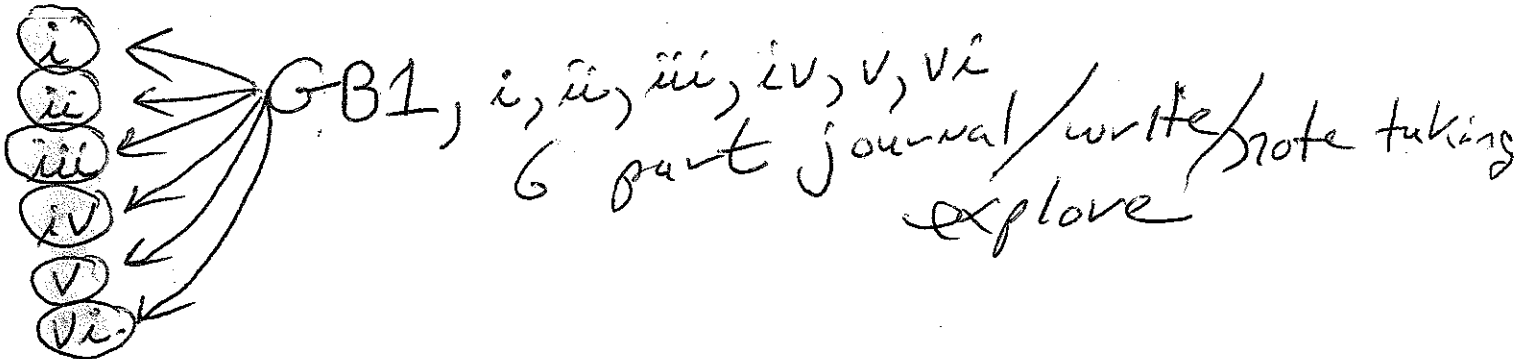 i
ii
iii
iv
v
vi.
GB1, i, ii, iii, iv, v, vi
6 part journal/write/note taking
explore